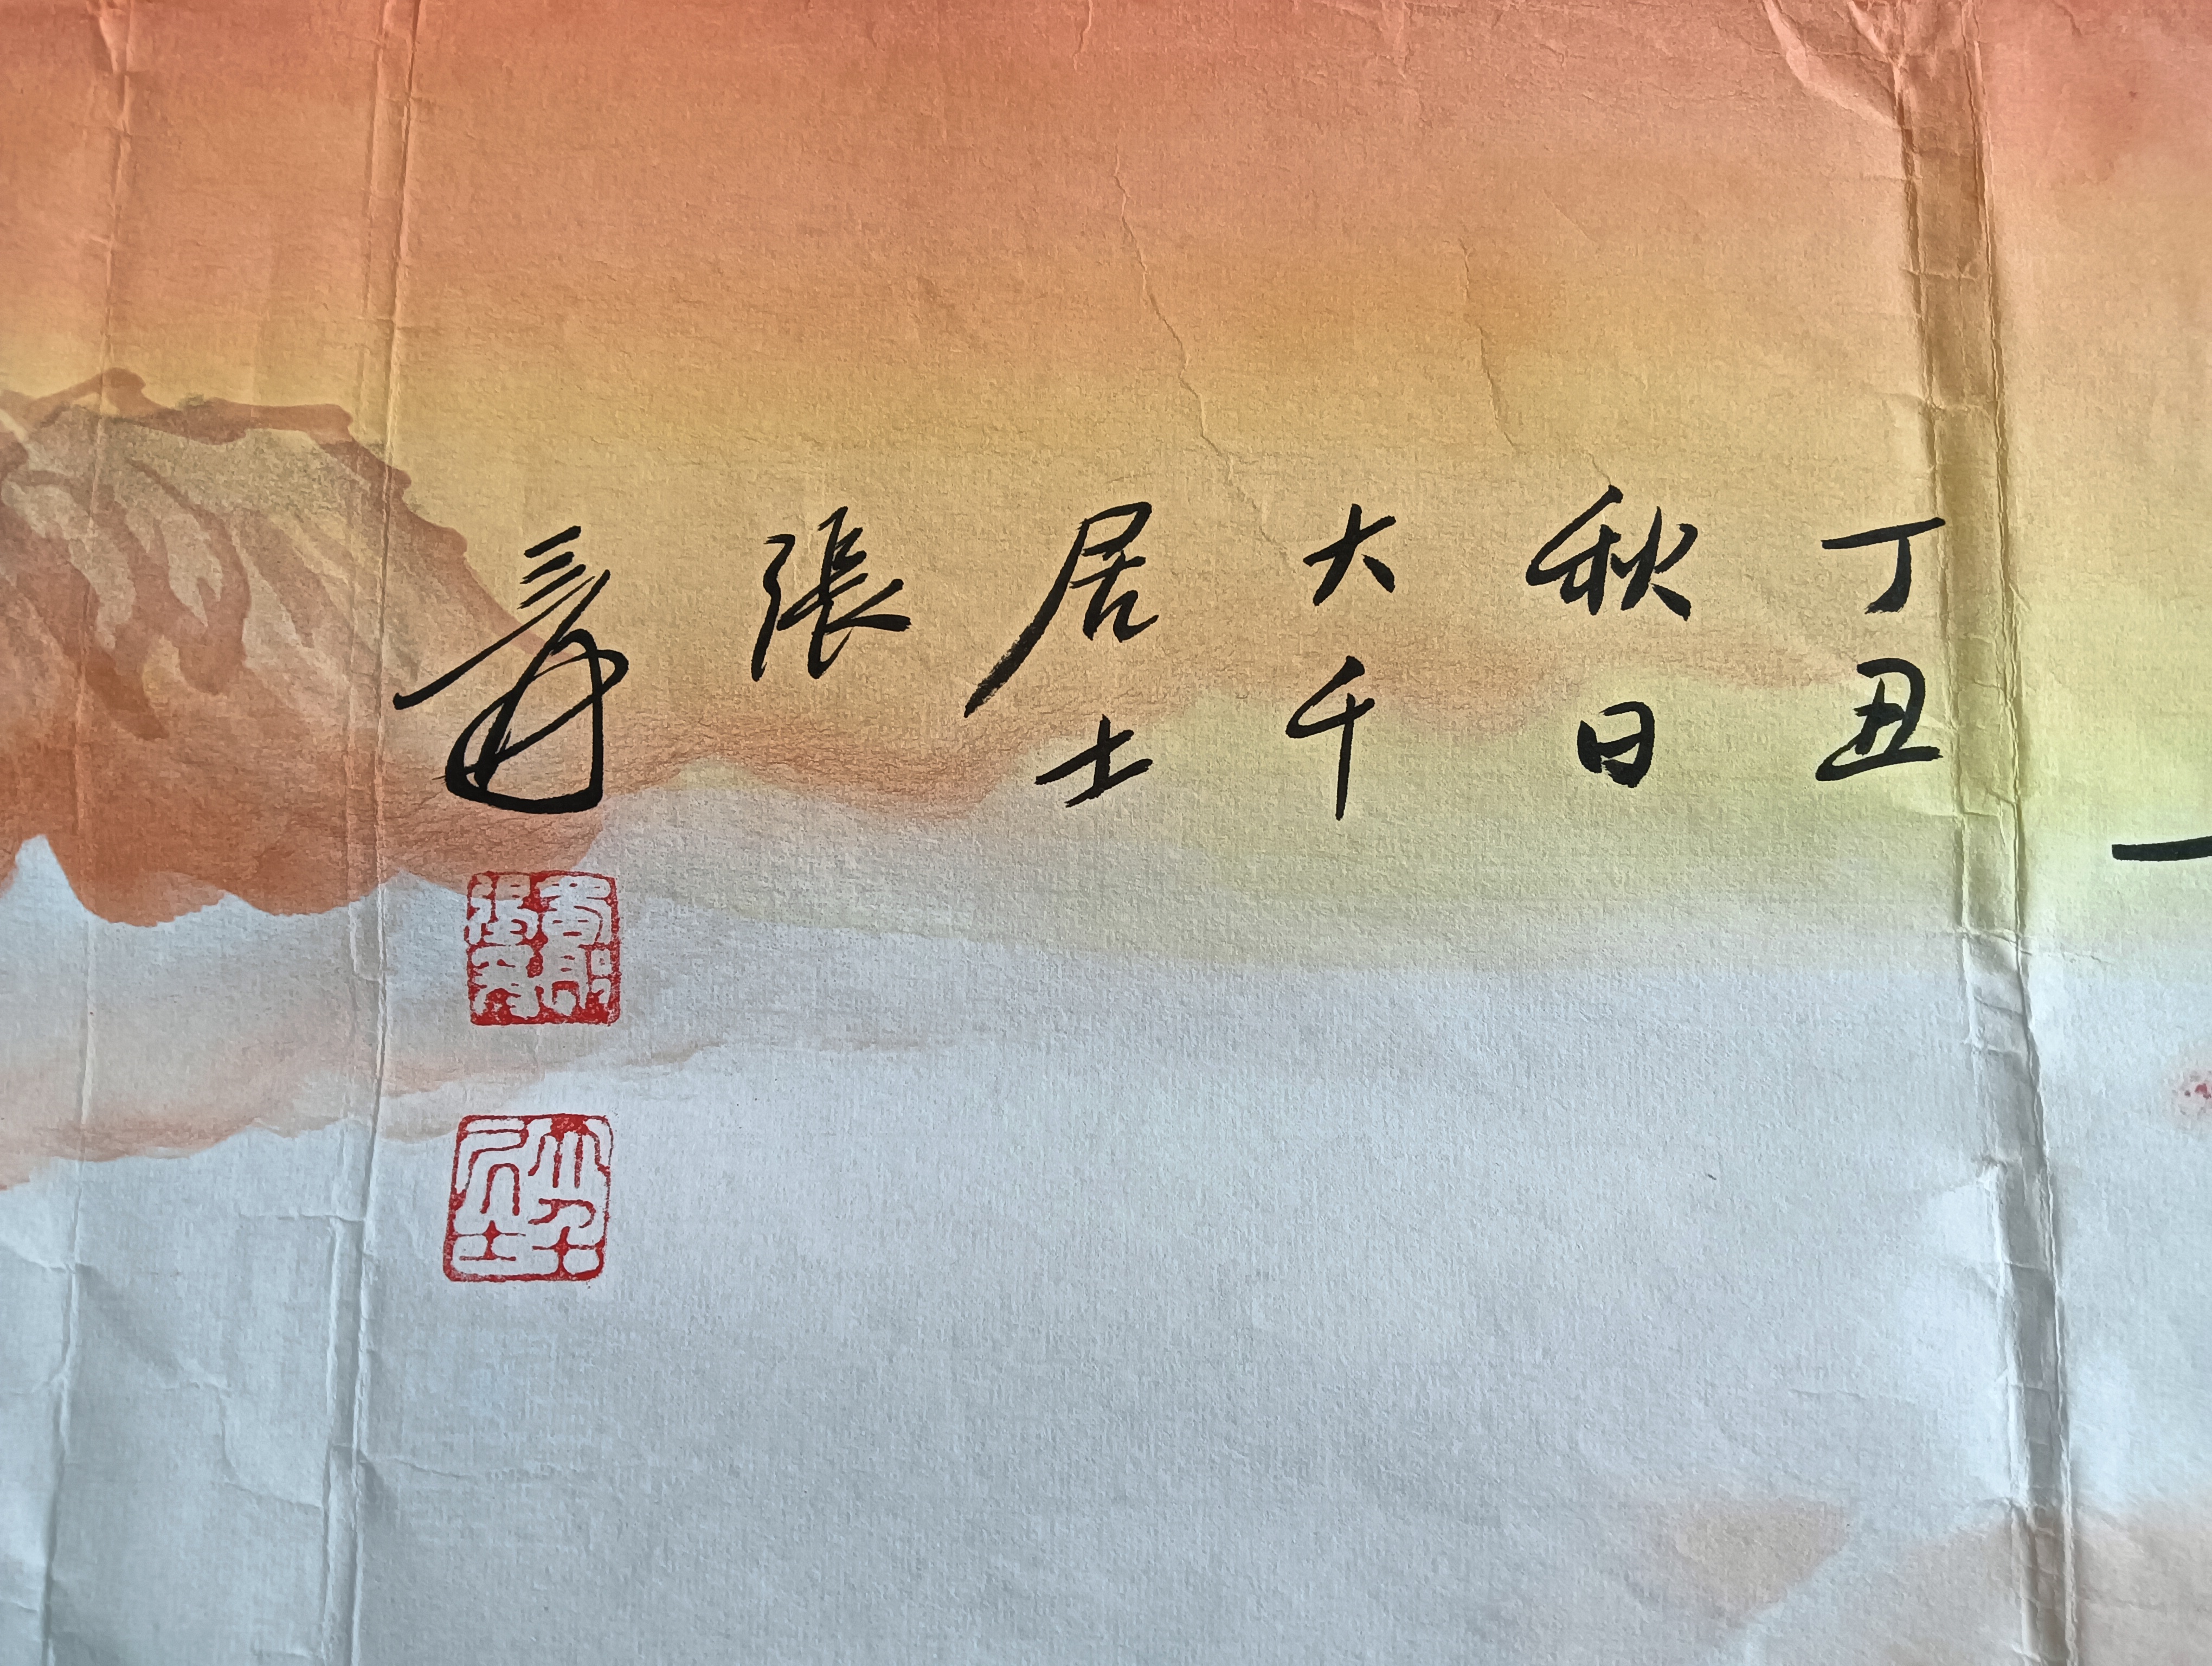 丁丑
秋日
大千
居士
張
爰